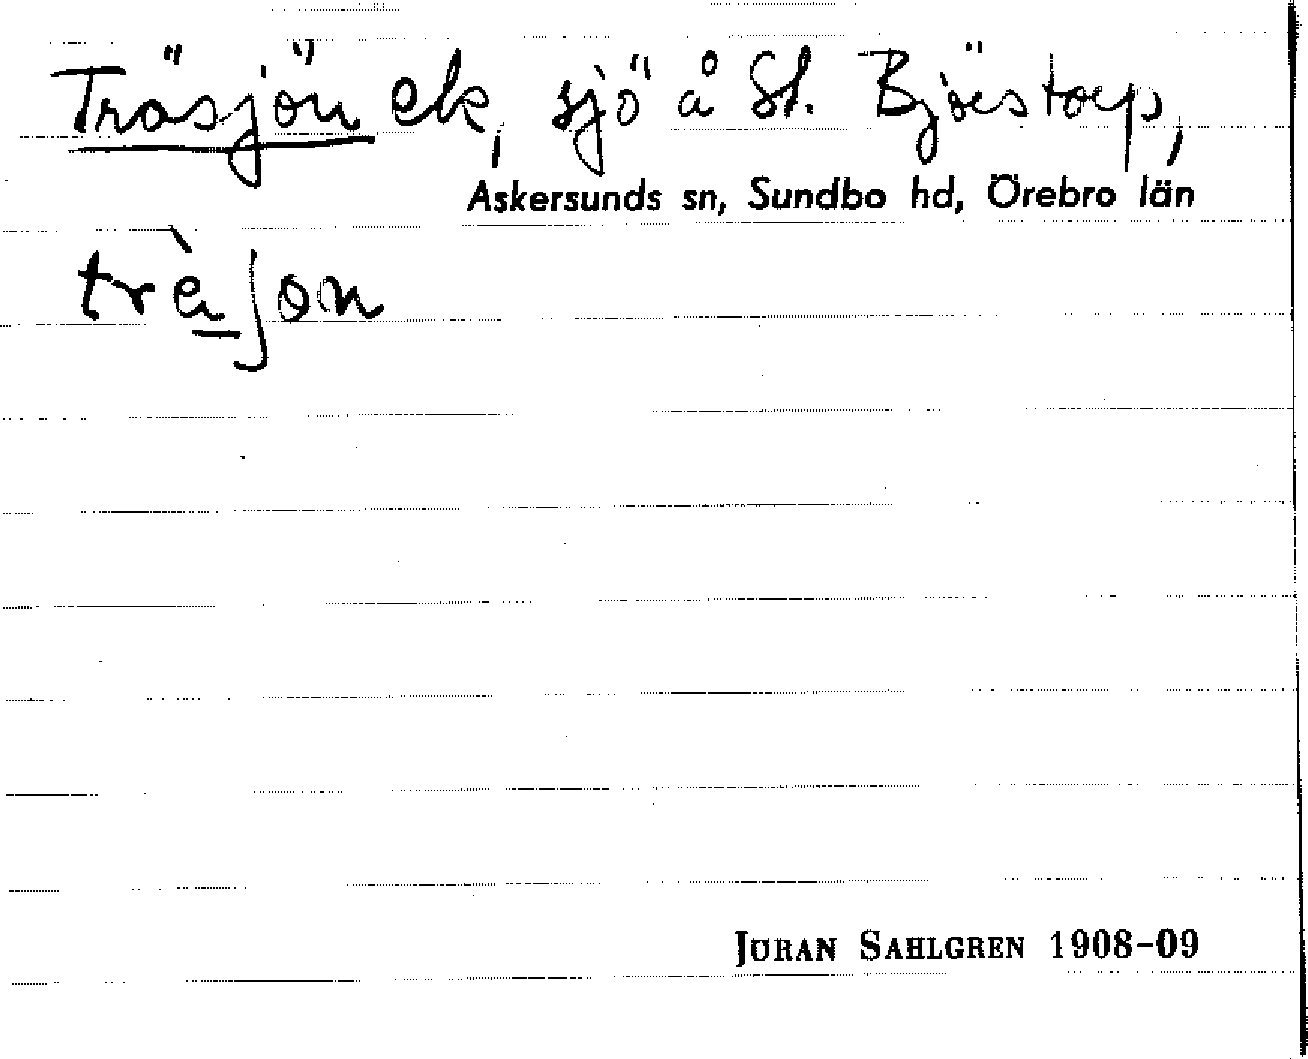 Träsjön ek, sjö å St. Björstorp,
Askersunds sn, Sundbo hd, Örebro län
trä̀ʃon
JÖRAN SAHLGREN 1908-09